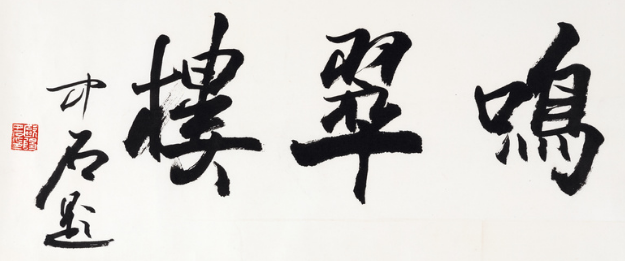 鳴翠樓
中石題